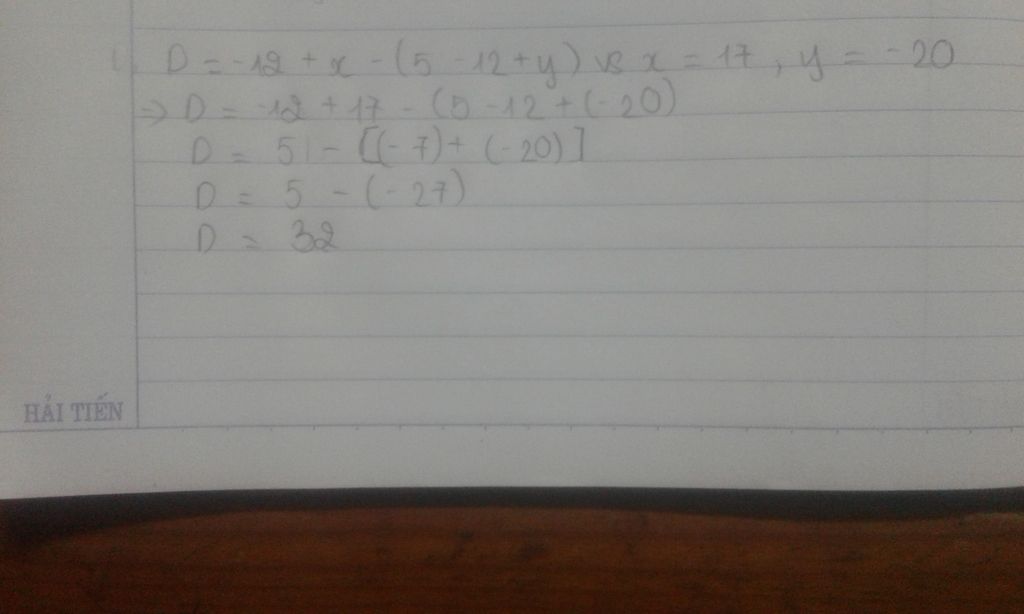 D = -12 + x - (5 - 12 + y) vs x = 17, y = -20
=> D = -12 + 17 - (5 - 12 + (-20)
D = 5 - [(-7) + (-20)]
D = 5 - (-27)
D = 32
HẢI TIẾN